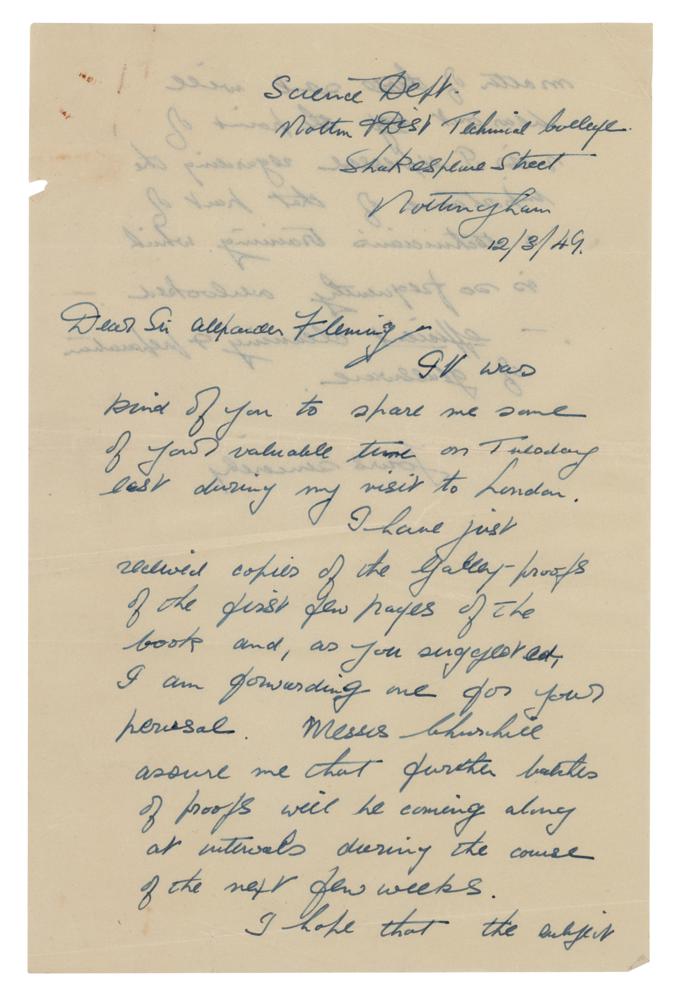 Science Dept.
Nottm & Dist Technical College.
Shakespeare Street
Nottingham
12/3/49.
Dear Sir Alexander Fleming
It was
kind of you to spare me some
of your valuable time on Tuesday
last during my visit to London.
I have just
received copies of the Galley-proofs
of the first few pages of the
book and, as you suggested,
I am forwarding one for your
perusal. Messrs Churchill
assure me that further batches
of proofs will be coming along
at intervals during the course
of the next few weeks.
I hope that the subject